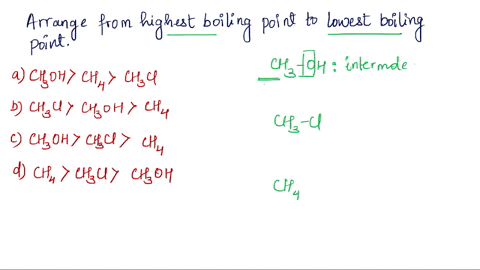 Arrange from highest boiling point to lowest boiling
point.
a) CH₃OH > CH₄ > CH₃Cl
b) CH₃Cl > CH₃OH > CH₄
c) CH₃OH > CH₃Cl > CH₄
d) CH₄ > CH₃Cl > CH₃OH
CH₃-OH : intermole
CH₃-Cl
CH₄